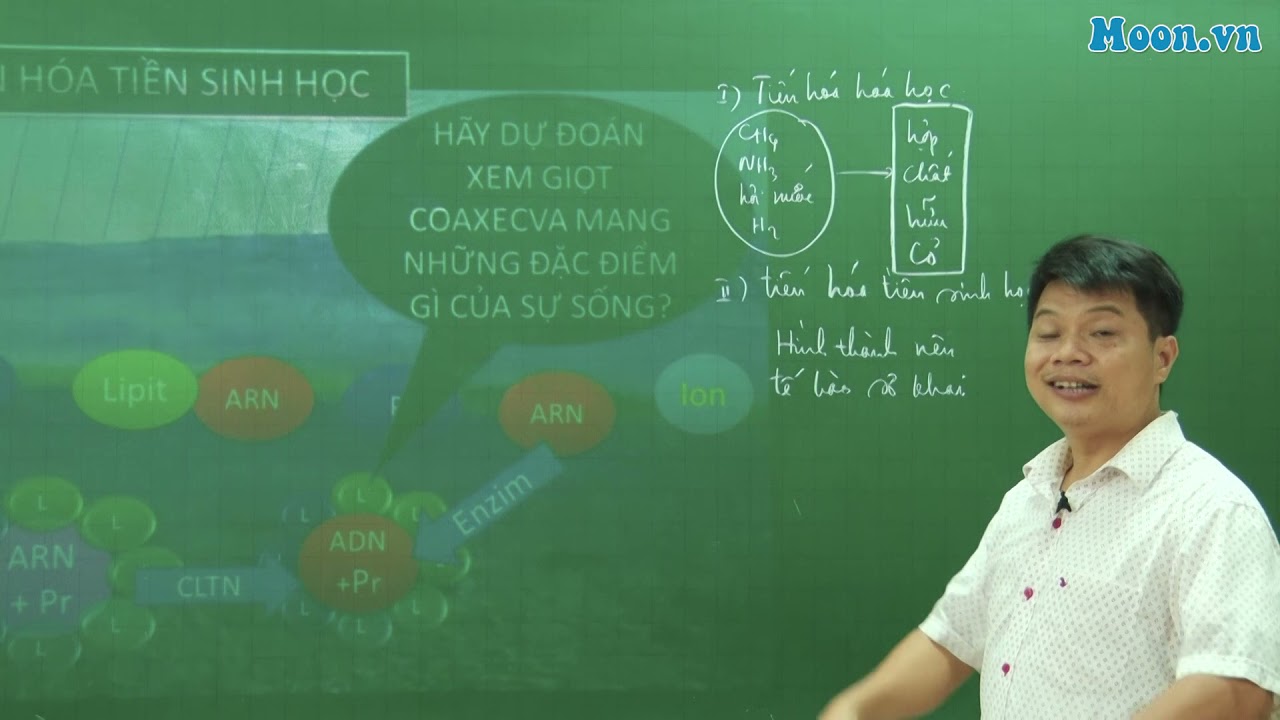 Moon.vn
N HÓA TIỀN SINH HỌC
HÃY DỰ ĐOÁN
XEM GIỌT
COAXECVA MANG
NHỮNG ĐẶC ĐIỂM
GÌ CỦA SỰ SỐNG?
Lipit
ARN
ARN
Ion
Enzim
L
L
L
L
L
L
ARN
+ Pr
CLTN
ADN
+Pr
L
L
L
L
L
L
I) Tiến hóa hóa học
CH4
NH3
hơi nước
H2
hợp
chất
hữu
cơ
II) tiến hóa tiền sinh học
Hình thành nên
tế bào sơ khai